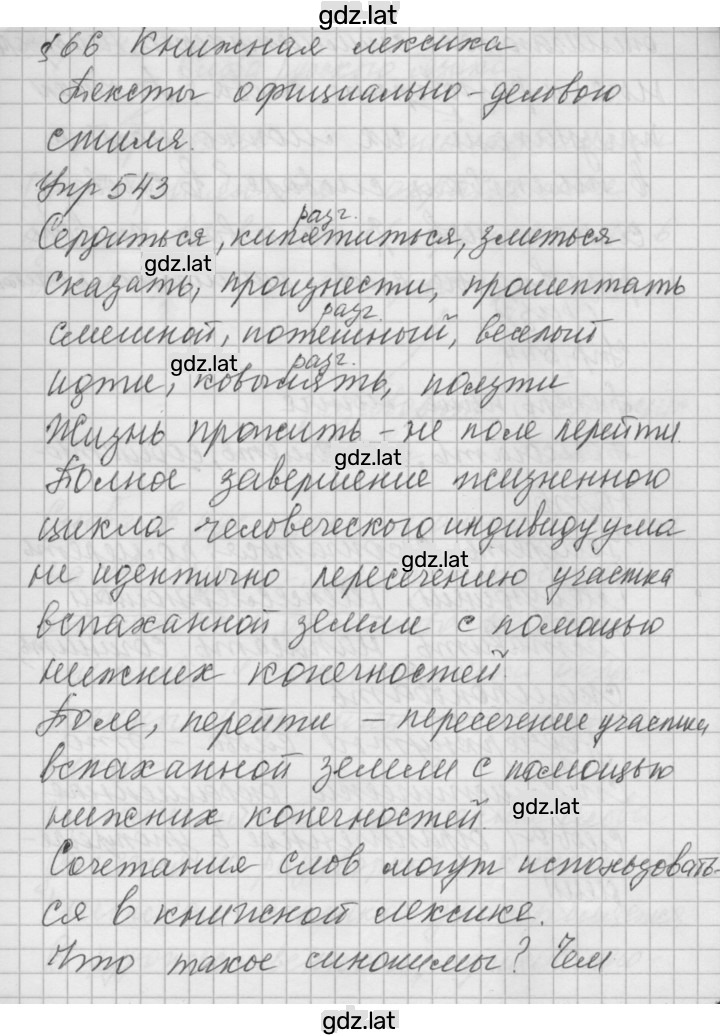 gdz.lat
§66 Книжная лексика
Тексты официально-делового
стиля.
Упр 543
разг.
Сердиться, кипятиться, злиться
gdz.lat
сказать, произнести, прошептать
разг.
смешной, потешный, веселый
gdz.lat разг.
идти, ковылять, ползти
Жизнь прожить – не поле перейти.
gdz.lat
Полное завершение жизненного
цикла человеческого индивидуума
gdz.lat
не идентично пересечению участка
вспаханной земли с помощью
нижних конечностей.
Поле, перейти – пересечение участка
вспаханной земли с помощью
нижних конечностей.
gdz.lat
Сочетания слов могут использовать-
ся в книжной лексике.
Что такое синонимы? Чем
gdz.lat